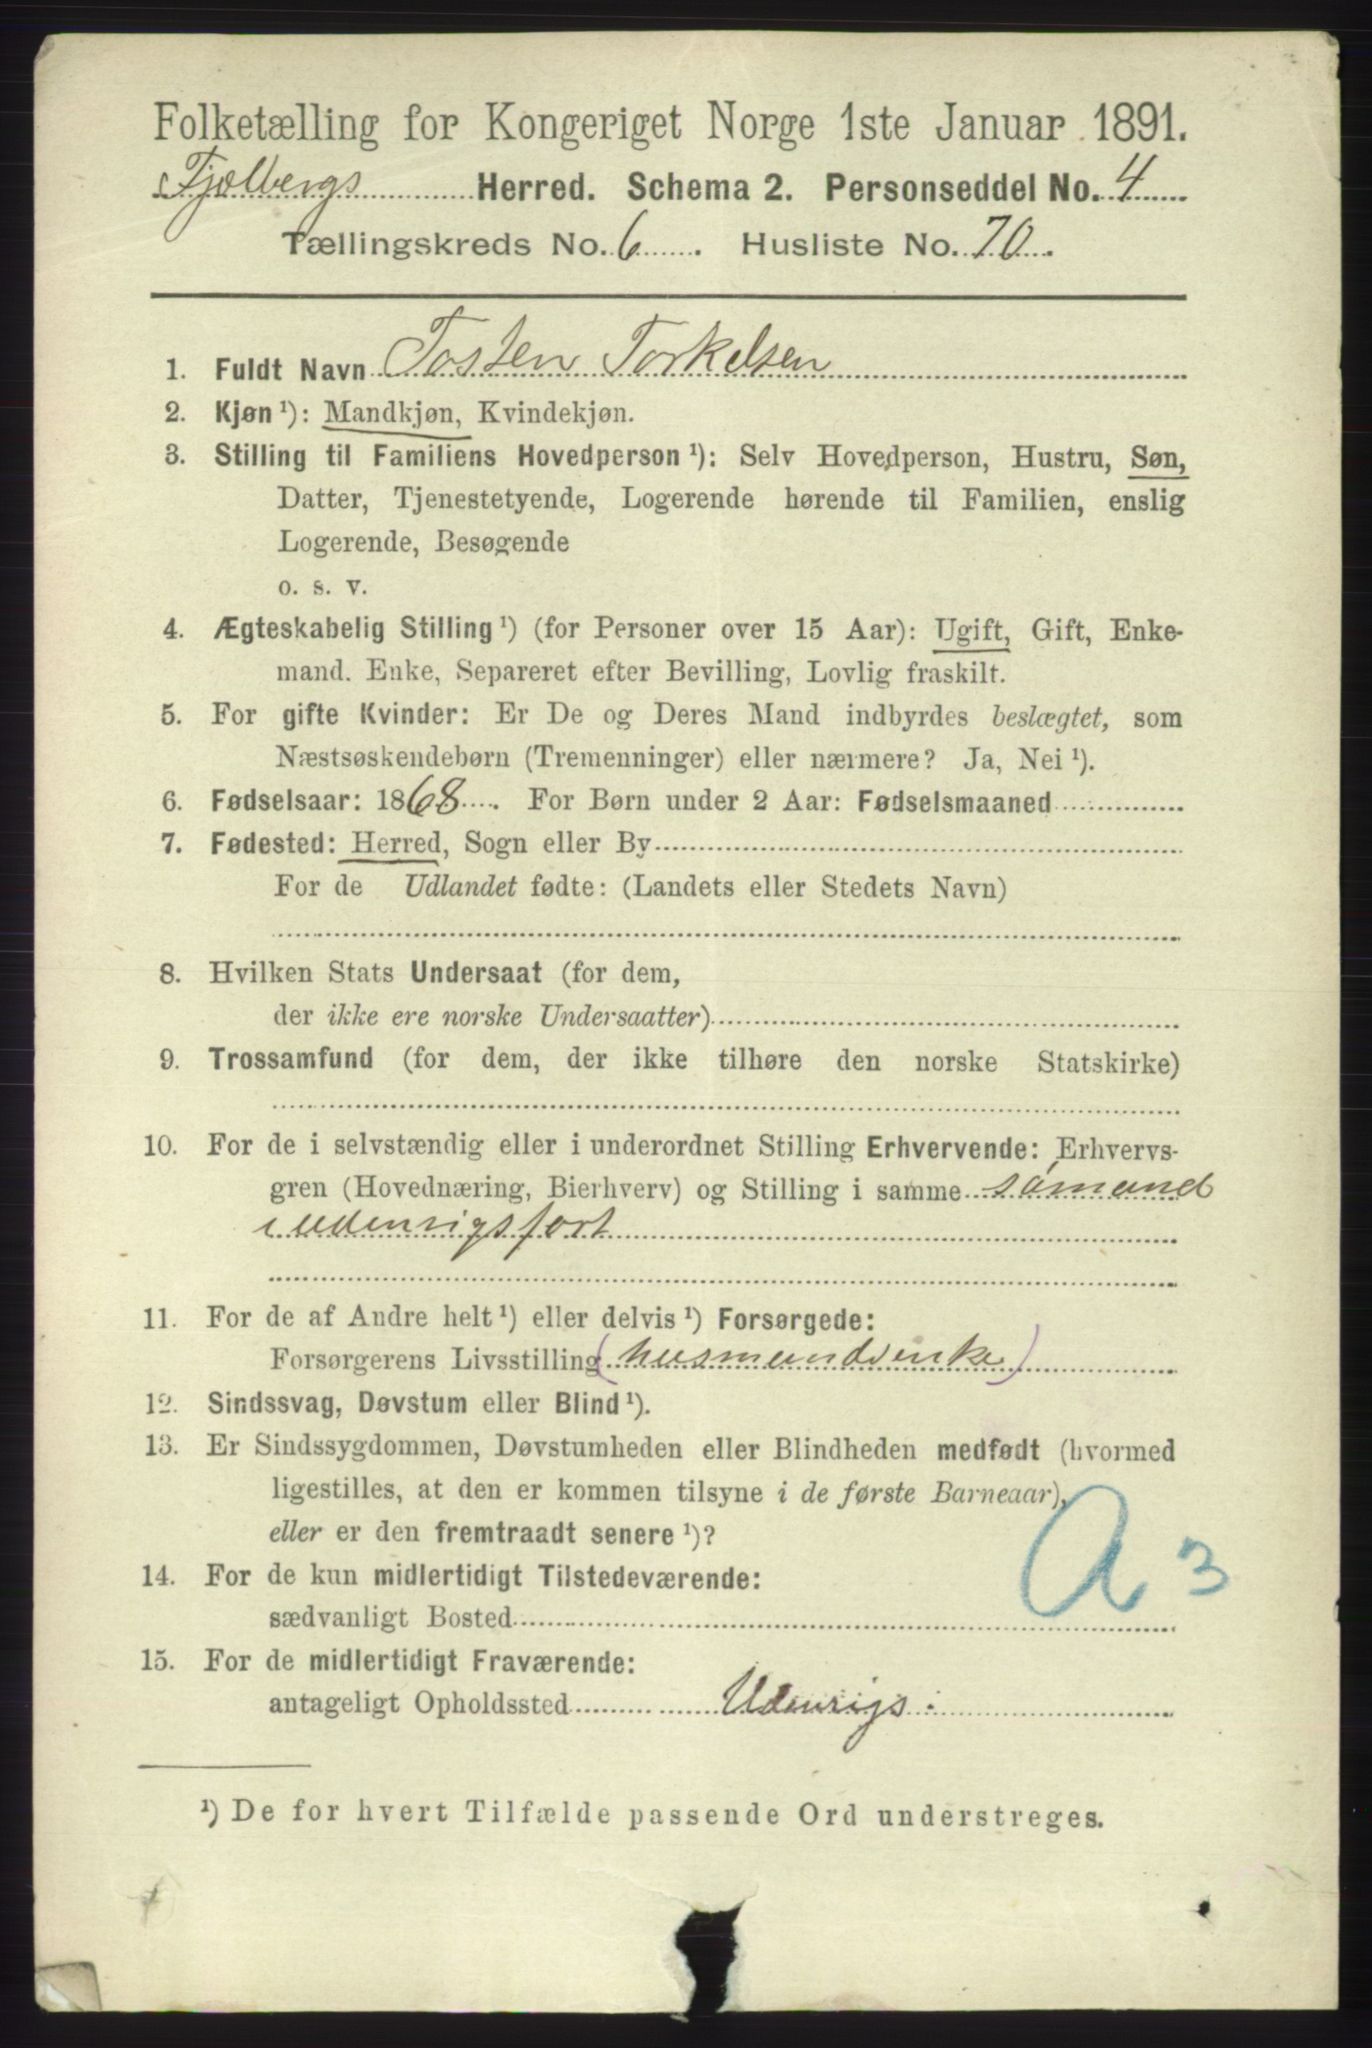 Folketælling for Kongeriget Norge 1ste Januar 1891.
Fjelbergs Herred. Schema 2. Personseddel No. 4
Tællingskreds No. 6. Husliste No. 70.
1. Fuldt Navn Tosten Torkelsen
2. Kjøn ¹): Mandkjøn, Kvindekjøn.
3. Stilling til Familiens Hovedperson ¹): Selv Hovedperson, Hustru, Søn,
Datter, Tjenestetyende, Logerende hørende til Familien, enslig
Logerende, Besøgende
o. s. v.
4. Ægteskabelig Stilling ¹) (for Personer over 15 Aar): Ugift, Gift, Enke-
mand. Enke, Separeret efter Bevilling, Lovlig fraskilt.
5. For gifte Kvinder: Er De og Deres Mand indbyrdes beslægtet, som
Næstsøskendebørn (Tremenninger) eller nærmere? Ja, Nei ¹).
6. Fødselsaar: 1868. For Børn under 2 Aar: Fødselsmaaned
7. Fødested: Herred, Sogn eller By
For de Udlandet fødte: (Landets eller Stedets Navn)
8. Hvilken Stats Undersaat (for dem,
der ikke ere norske Undersaatter)
9. Trossamfund (for dem, der ikke tilhøre den norske Statskirke)
10. For de i selvstændig eller i underordnet Stilling Erhvervende: Erhvervs-
gren (Hovednæring, Bierhverv) og Stilling i samme sømand
i udenrigsfart
11. For de af Andre helt ¹) eller delvis ¹) Forsørgede:
Forsørgerens Livsstilling (husmandsenke)
12. Sindssvag, Døvstum eller Blind ¹).
13. Er Sindssygdommen, Døvstumheden eller Blindheden medfødt (hvormed
ligestilles, at den er kommen tilsyne i de første Barneaar),
eller er den fremtraadt senere ¹)?
A 3
14. For de kun midlertidigt Tilstedeværende:
sædvanligt Bosted
15. For de midlertidigt Fraværende:
antageligt Opholdssted Udenrigs.
¹) De for hvert Tilfælde passende Ord understreges.